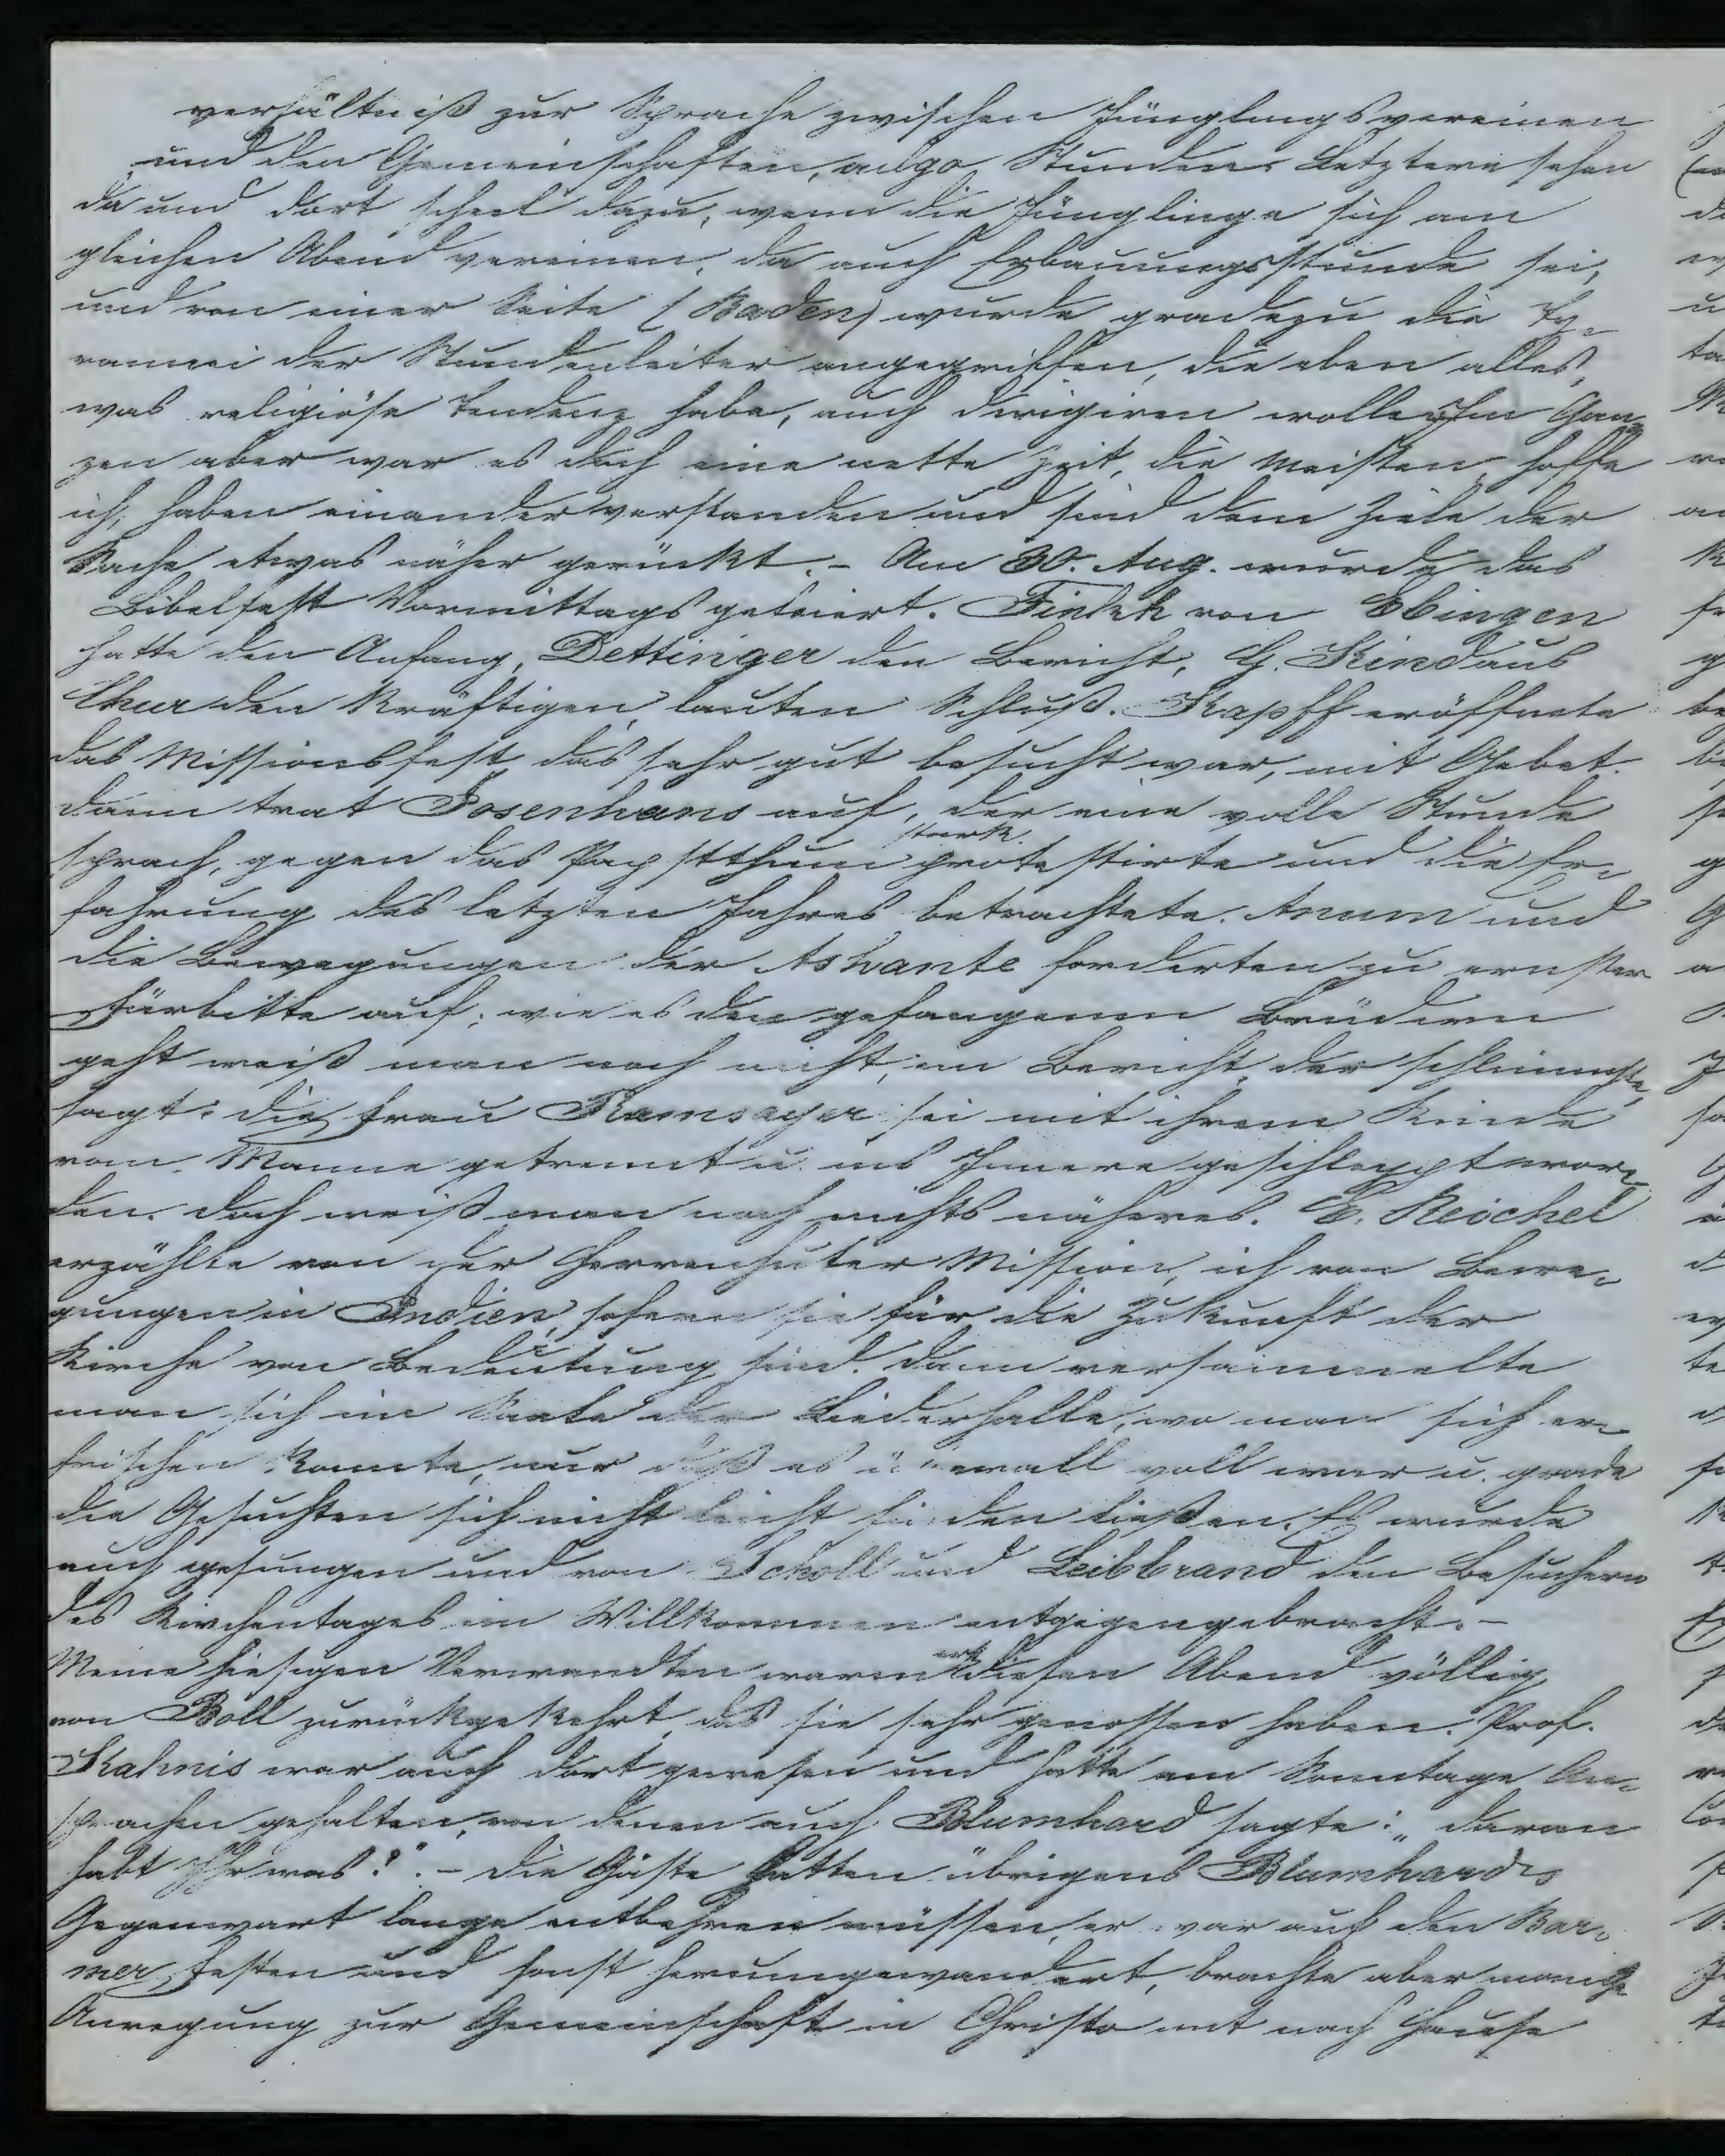 verhältniß zur Sprache zwischen Jünglingsvereinen
und den Gemeinschaften, Stunden. Letztere sehen
da und dort scheel dazu, wenn die Jünglinge sich am
gleichen Abend vereinen, da auch Erbauungsstunde sei,
und von einer Seite (Baden) wurde gradezu die Ty-
rannei der Stundenleiter angegriffen, die eben alles,
was religiöse Tendenz habe, auch dirigiren wollen. Im Gan-
zen aber war es doch eine nette Zeit, die Meisten, hoffe
ich, haben einander verstanden und sind dem Ziele der
Sache etwas näher gerückt. - Am 30. Aug. wurde das
Bibelfest Vormittags gefeiert. Finkh von Ebingen
hatte den Anfang, Dettinger den Bericht, G. Kind aus
Chur den kräftigen, lauten Schluß. Kapff eröffnete
das Missionsfest, das sehr gut besucht war, mit Gebet.
dann trat Josenhans auf, der eine volle Stunde
sprach, gegen das Papstthum stark protestirte und die Er-
fahrung des letzten Jahres betrachtete. Anum und
die Bewegungen der Ashante forderten zu ernster
Fürbitte auf; wie es den gefangenen Brüdern
geht weiß man noch nicht, ein Bericht, der schlimmste,
sagt: die Frau Ramseyer sei mit ihrem Kinde
vom Manne getrennt u. ins Innere geschleppt wor-
den. doch weiß man noch nichts näheres. E. Reichel
erzählte von der Herrenhuter Mission, ich von Bewe-
gungen in Indien, sofern sie für die Zukunft der
Kirche von Bedeutung sind. dann versammelte
man sich im Saale der Liederhalle, wo man sich er-
frischen konnte, nur daß es überall voll war u. grade
die Gesuchten sich nicht leicht finden ließen. Es wurde
auch gesungen und von Schott und Leibbrand den Besuchern
des Kirchentages ein Willkommen entgegengebracht. -
Meine hiesigen Verwandten waren erst diesen Abend völlig
von Boll zurückgekehrt, das sie sehr genossen haben. Prof.
Kahnis war auch dort gewesen und hatte am Sonntage An-
sprachen gehalten, von denen auch Blumhard sagte: „daran
habt Ihr was!". - die Gäste hatten übrigens Blumhards
Gegenwart lange entbehren müssen, er war auf den Bar-
mer Festen und sonst herumgewandert, brachte aber manche
Anregung zur Gemeinschaft in Christo mit nach Hause